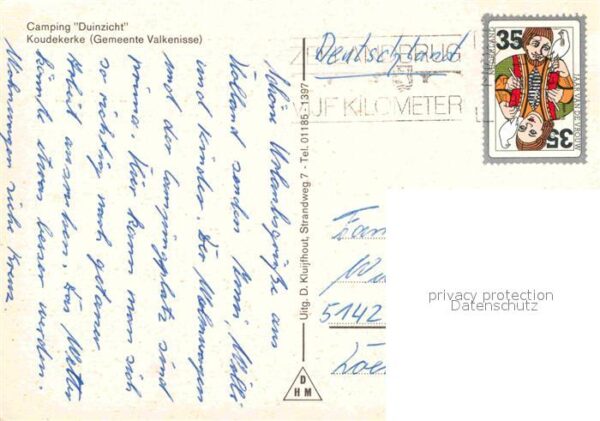 Camping "Duinzicht"
Koudekerke (Gemeente Valkenisse)
Schöne Urlaubsgrüße aus
Holland senden Willi
und Kinder. Der Wohnwagen
und der Campingplatz sind
prima. Hier kann man sich
so richtig nach getaner
Arbeit ausruhen. Das Wetter
könnte etwas besser werden.
Wohnwagen siehe Kreuz.
Uitg. D. Kluijfhout, Strandweg 7 - Tel. 01185-1397
D
HM
Deutschland
JF KILOMETER
35
JAAR VAN DE VROUW
35
Fam
5142
privacy protection
Datenschutz